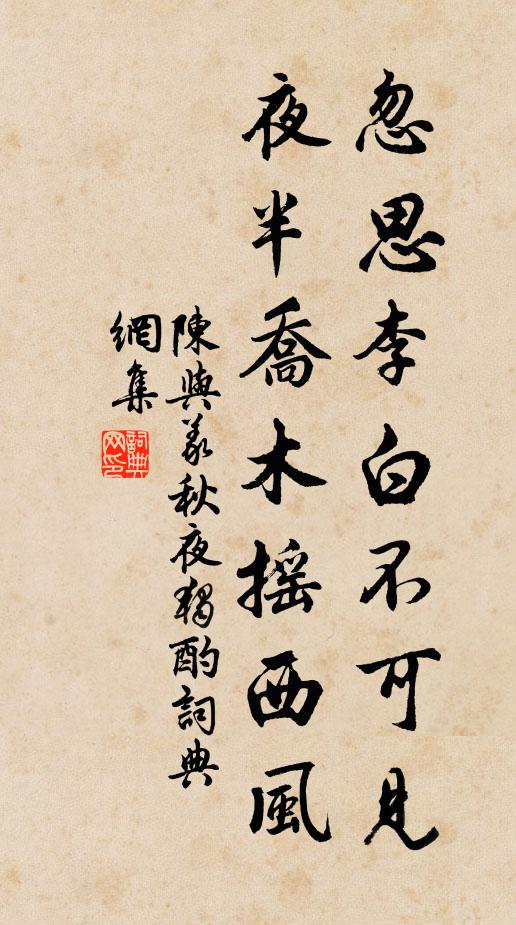 忽思李白不可見
夜半喬木搖西風
陳與義秋夜獨酌詞典
網集
詞典
网印